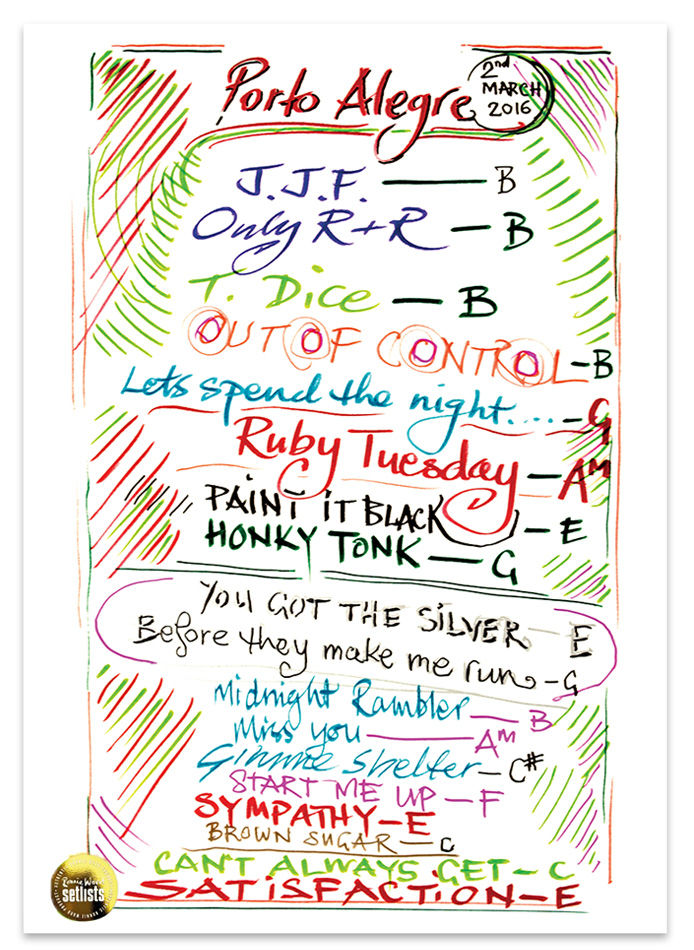 Porto Alegre
2nd
MARCH
2016
J.J.F. — B
Only R+R — B
T. Dice — B
OUT OF CONTROL – B
Lets spend the night.... – G
Ruby Tuesday – Am
PAINT IT BLACK – E
HONKY TONK – G
YOU GOT THE SILVER – E
Before they make me run – G
Midnight Rambler – B
Miss you — Am
Gimme Shelter – C#
START ME UP – F
SYMPATHY – E
BROWN SUGAR – C
CAN'T ALWAYS GET – C
SATISFACTION – E
Ronnie Wood
setlists